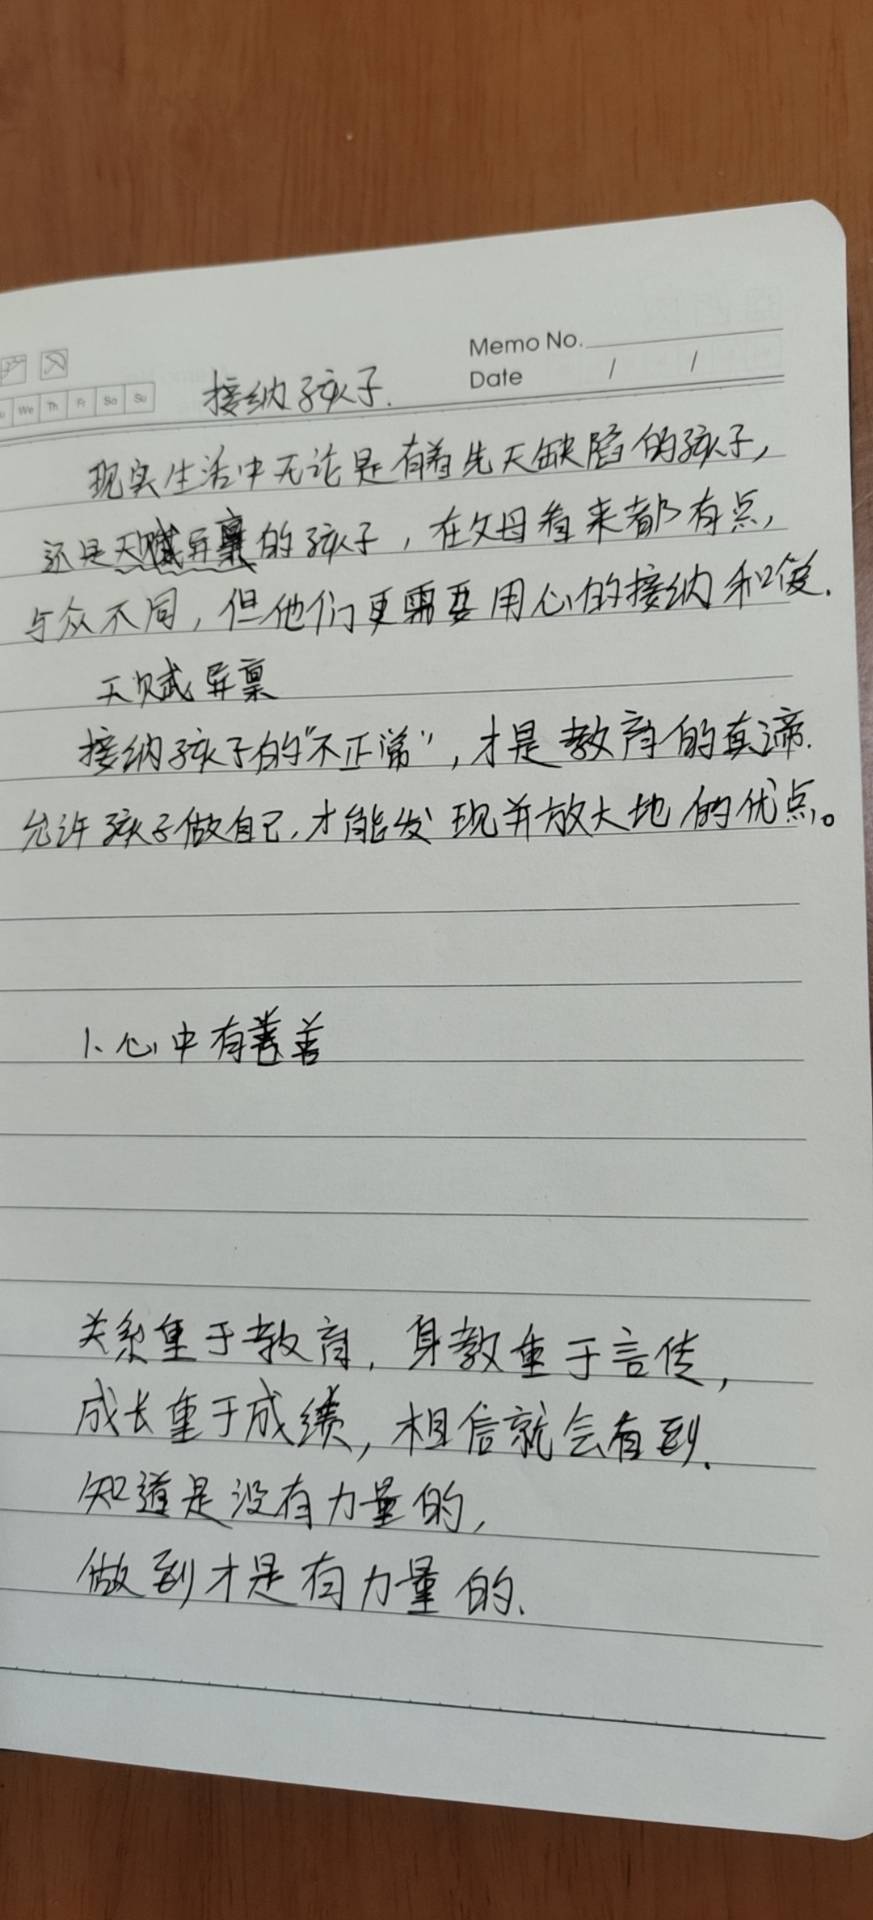 Memo No.
Date / /
We Th Fr Sa Su
接纳孩子.
现实生活中无论是有着先天缺陷的孩子,
还是天赋异禀的孩子,在父母看来都有点,
与众不同,但他们更需要用心的接纳和爱.
天赋异禀
接纳孩子的"不正常",才是教育的真谛.
允许孩子做自己.才能发现并放大地的优点。
1、心中有善
关系重于教育,身教重于言传,
成长重于成绩,相信就会看到.
知道是没有力量的,
做到才是有力量的.